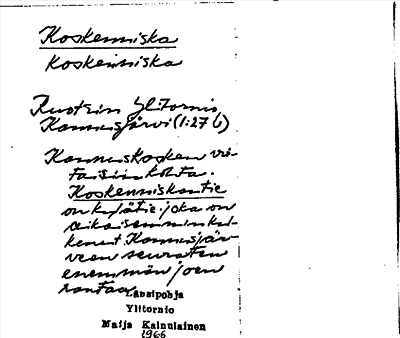 Koskenniska
Koskenniska
Ruotsin Ylitornio
Kannusjärvi (1:27 b)
Kannuskosken vir-
taisin kohta.
Koskenniskantie
on kylätie, joka on
aikaisemmin kul-
kenut Kannusjär-
veen seuraten
enemmän joen
rantaa.
Länsipohja
Ylitornio
Maija Kainulainen
1966